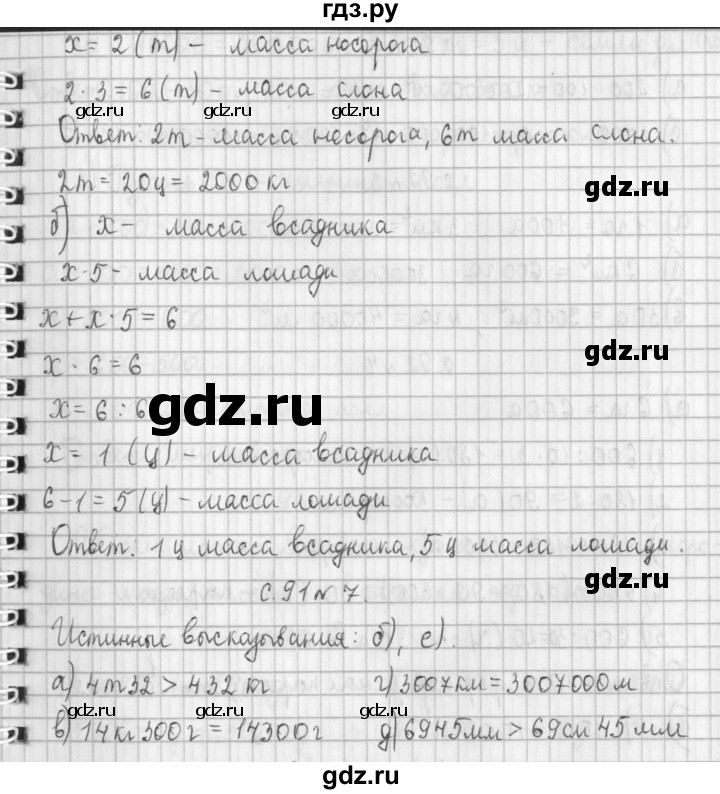 гдз.ру
x = 2 (т) - масса носорога
2 · 3 = 6 (т) - масса слона
gdz.ru gdz.ru gdz.ru
Ответ: 2т - масса носорога, 6т масса слона.
2т = 20ц = 2000 кг
gdz.ru
б) x - масса всадника
x · 5 - масса лошади
x + x · 5 = 6
gdz.ru
x · 6 = 6
x = 6 : 6
gdz.ru
x = 1 (ц) - масса всадника
6 - 1 = 5 (ц) - масса лошади
Ответ: 1 ц масса всадника, 5 ц масса лошади.
gdz.ru
с. 91 № 7.
Истинные высказывания: б), е).
а) 4т32 > 432 кг г) 3007км = 3007000м
gdz.ru gdz.ru gdz.ru
в) 14кг 300г = 14300г д) 6945мм > 69см 45мм
gdz.ru